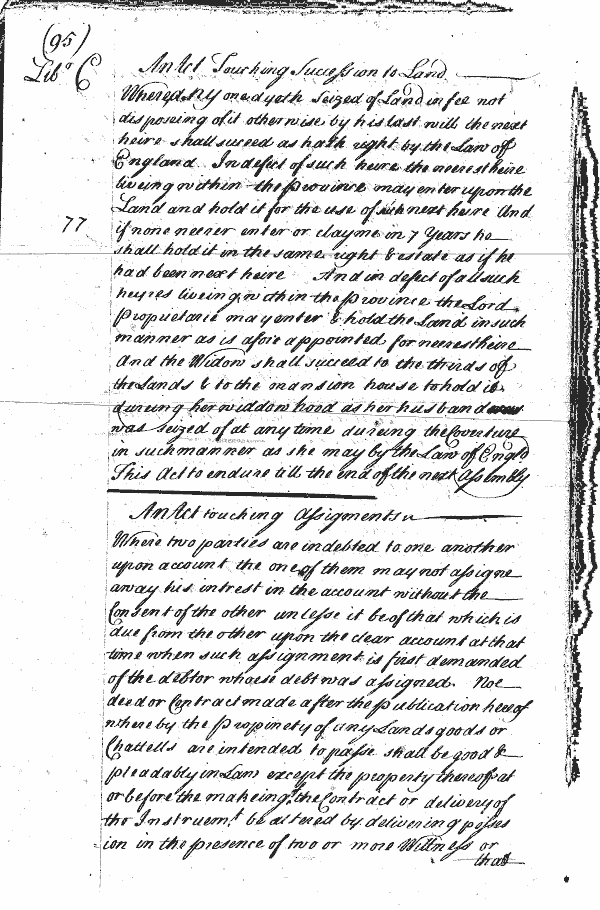 (95)
Libº C
An Act Touching Succession to Land
Where any one dyeth Seized of Land in fee not
disposeing of it otherwise by his last will the next
heire shall succeed as hath right by the Law of
England. In defect of such heire the neerest heire
liveing within the Province may enter upon the
Land and hold it for the use of such next heire And
77
if none neerer enter or clayme in 7 Years he
shall hold it in the same right & estate as if he
had been next heire And in defect of all such
heyres liveing within the Province the Lord
Proprietarie may enter & hold the Land in such
manner as is afore appointed for neerest heire
And the Widow shall succeed to the thirds of
the Lands & to the mansion house to hold it
dureing her widdow hood as her husband
was seized of at any time dureing the Coverture
in such manner as she may by the Law of Engld
This Act to endure till the end of the next Assembly
An Act touching Assigments
Where two parties are indebted to one another
upon account the one of them may not assigne
away his intrest in the account without the
Consent of the other unlesse it be of that which is
due from the other upon the clear account at that
time when such assignment is first demanded
of the debtor whose debt was assigned. Noe
deed or Contract made after the Publication hereof
whereby the Propriety of any Lands goods or
Chattells are intended to passe shall be good &
pleadably in Law except the property thereof at
or before the makeing the Contract or delivery of
the Instruemt be altered by delivering posses
ion in the presence of two or more Wittness or
that